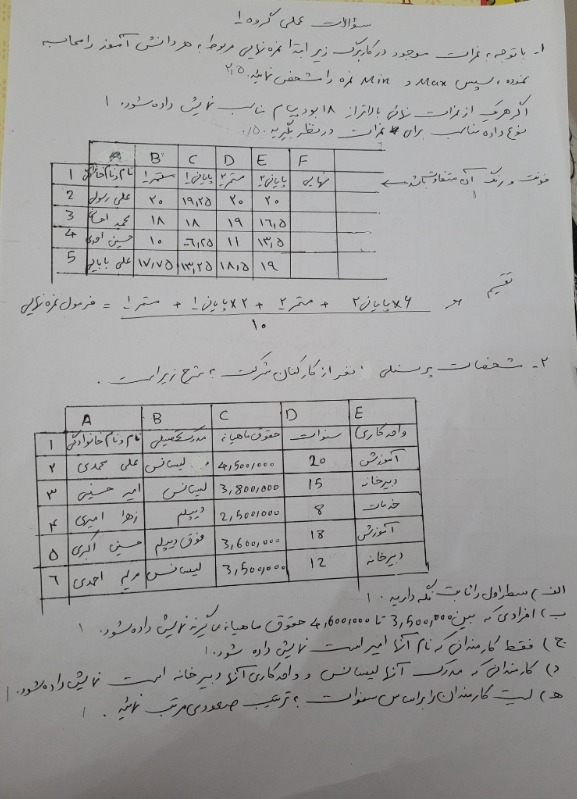 سوالات عملی گروه ۱
۱- با توجه به نمرات موجود در کاربرگ زیر ابتدا نمره نهایی مربوط به هر دانش آموز را محاسبه
نموده، سپس Max و Min نمره را مشخص نمائید. ۲,۵
اگر هر یک از نمرات نهائی بالاتر از ۱۸ بود پیام مناسب نمایش داده شود. ۱
نوع داده مناسب برای نمرات در نظر بگیرید. ۰/۵
A B C D E F
1 نام و نام خانوادگی مستمر ۱ پایانی ۱ مستمر ۲ پایانی ۲ نهایی
فونت و رنگ آن متفاوت باشد ۱
2 علی رسولی ۲۰ ۱۹,۲۵ ۲۰ ۲۰
3 محمد ۱۸ ۱۸ ۱۹ ۱۶,۵
4 حسین ۱۰ ۶,۲۵ ۱۱ ۱۳,۵
5 علی بابایی ۱۷,۷۵ ۱۳,۲۵ ۱۸,۵ ۱۹
فرمول نمره نهایی = مستمر ۱ + پایانی ۱ × ۲ + مستمر ۲ + پایانی ۲ × ۶ تقسیم بر
۱۰
۲- مشخصات پرسنلی نفر از کارکنان شرکت به شرح زیر است.
A B C D E
1 نام و نام خانوادگی مدرک تحصیلی حقوق ماهیانه سنوات واحد کاری
۲ علی محمدی لیسانس 4,500,000 20 آموزش
۳ امیر حسینی لیسانس 3,800,000 15 دبیرخانه
۴ زهرا امیری دیپلم 2,500,000 8 خدمات
۵ حسین اکبری فوق دیپلم 3,600,000 18 آموزش
۶ مریم احمدی لیسانس 3,500,000 12 دبیرخانه
الف) سطر اول را ثابت نگه دارید. ۱
ب) افرادی که بین 3,500,000 تا 4,600,000 حقوق ماهیانه می گیرند نمایش داده شود. ۱
ج) فقط کارمندانی که نام آنها امیر است نمایش داده شود. ۱
د) کارمندانی که مدرک آنها لیسانس و واحد کاری آنها دبیرخانه است نمایش داده شود. ۱
ه) لیست کارمندان را بر اساس سنوات به ترتیب صعودی مرتب نمائید. ۱